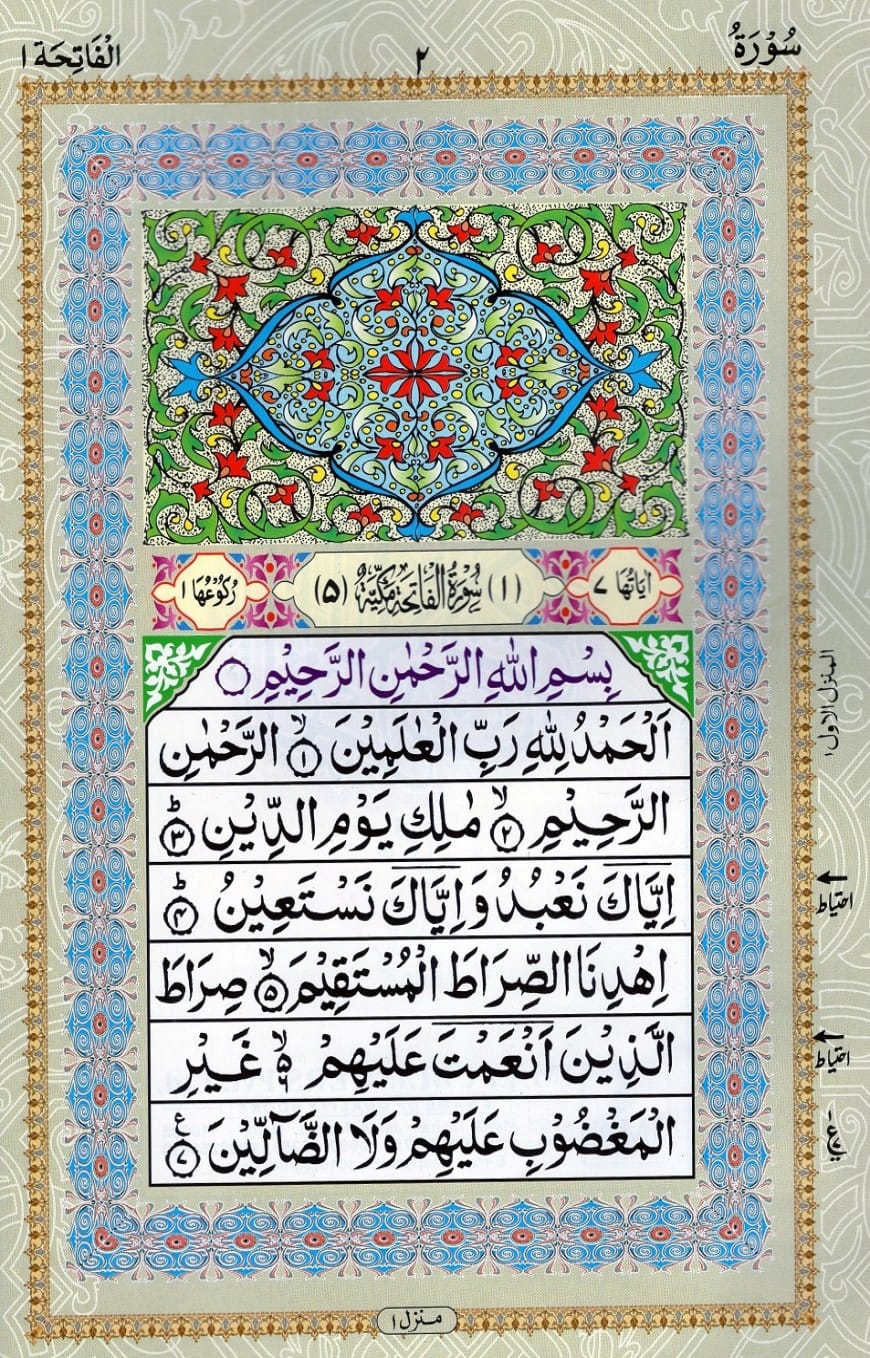 سُوْرَةُ ٢ الْفَاتِحَة ١
اٰيَاتُهَا ٧ (١) سُوْرَةُ الْفَاتِحَةِ مَكِّيَّةٌ (٥) رُكُوْعُهَا ١
بِسْمِ اللّٰهِ الرَّحْمٰنِ الرَّحِيْمِ ۝
اَلْحَمْدُ لِلّٰهِ رَبِّ الْعٰلَمِيْنَ ۙ‏﴿١﴾ الرَّحْمٰنِ
الرَّحِيْمِ ۙ‏﴿٢﴾ مٰلِكِ يَوْمِ الدِّيْنِ ؕ‏﴿٣﴾
اِيَّاكَ نَعْبُدُ وَاِيَّاكَ نَسْتَعِيْنُ ؕ‏﴿٤﴾
اِهْدِنَا الصِّرَاطَ الْمُسْتَقِيْمَ ۙ‏﴿٥﴾ صِرَاطَ
الَّذِيْنَ اَنْعَمْتَ عَلَيْهِمْ ۙ۬ ٦ غَيْرِ
الْمَغْضُوْبِ عَلَيْهِمْ وَلَا الضَّآلِّيْنَ ﴿٧﴾ ع
المنزل الاول ١
احتیاط
احتیاط
منزل ١